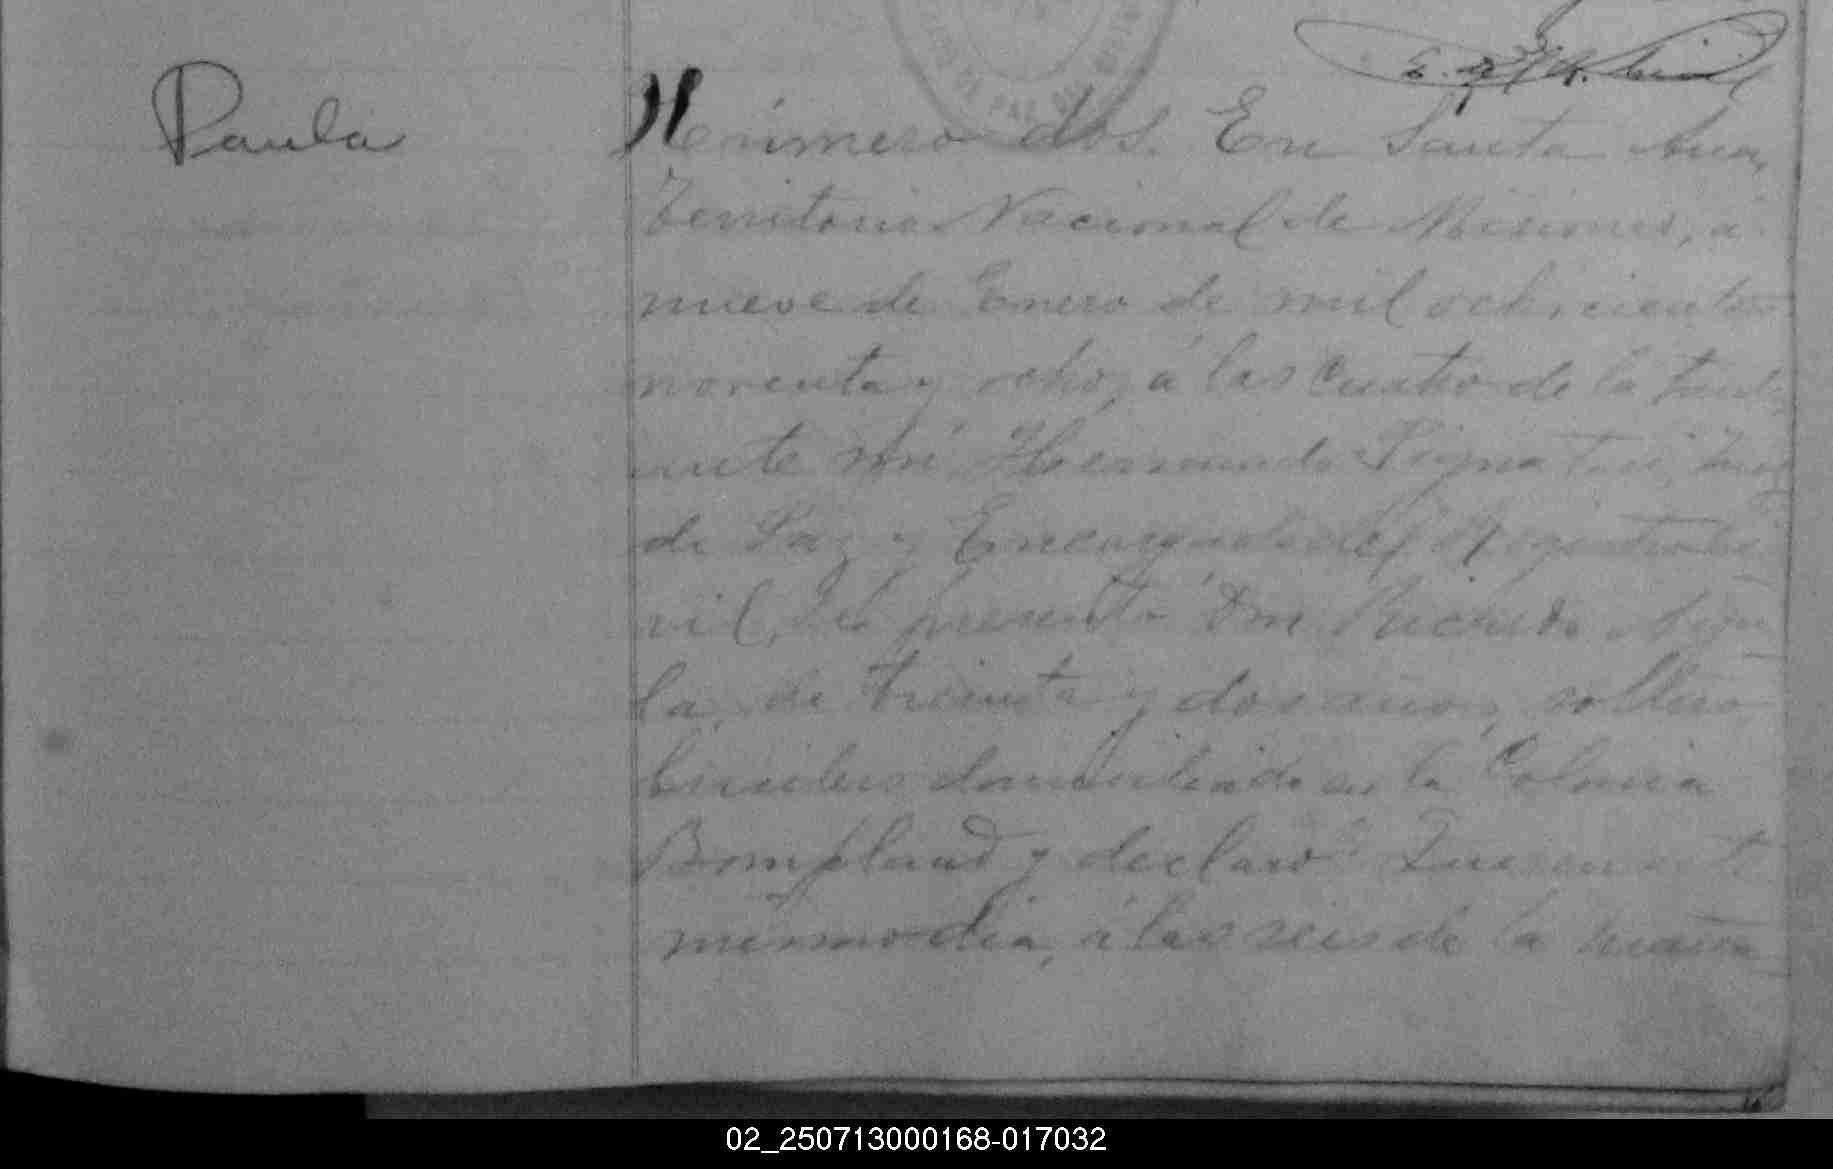 Paula
Número dos. En Santa Ana,
Territorio Nacional de Misiones, á
nueve de Enero de mil ochocientos
noventa y ocho, á las cuatro de la tarde,
ante mi Hermenando Pignatari, Juez
de Paz y Encargado del Registro Ci-
vil, se presentó Don Ricardo
la, de treinta y dos años, soltero,
domiciliado en la Colonia
Bompland y declaró: Que en este
mismo dia, á las seis de la mañana
02_250713000168-017032